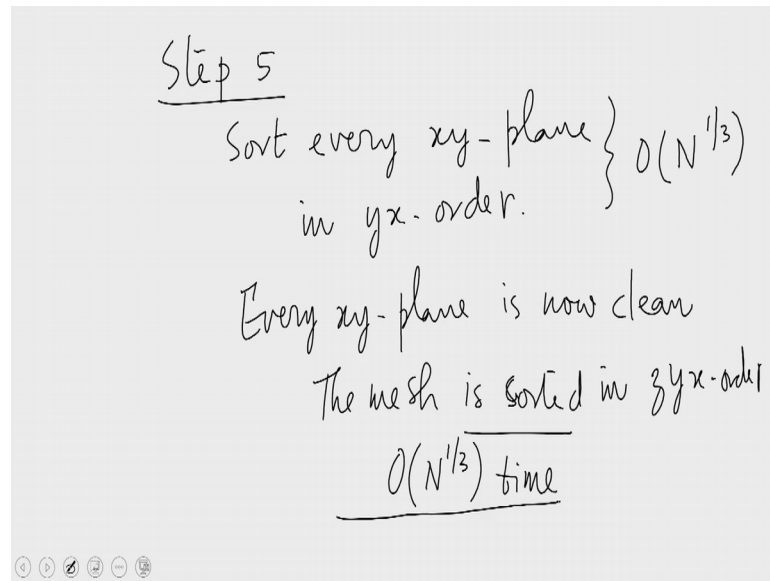 Step 5
Sort every xy-plane } O(N^1/3)
in yx-order.
Every xy-plane is now clean
The mesh is sorted in zyx-order
O(N^1/3) time